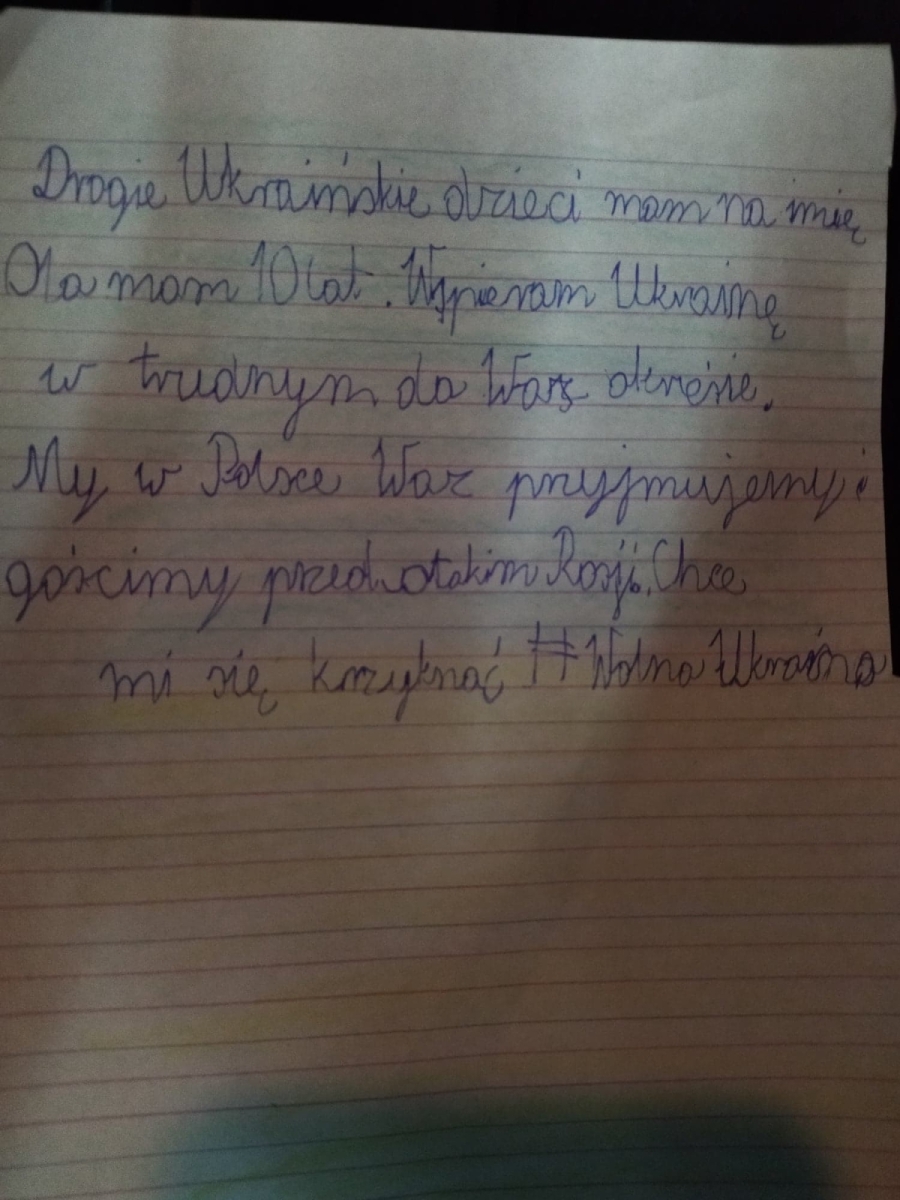 Drogie Ukraińskie dzieci mam na imię
Ola mam 10 lat. Wspieram Ukrainę
w trudnym da Was okresie.
My w Polsce Was przyjmujemy i
gościmy przed atakim Rosji. Chce
mi się krzyknąć #Wolna Ukraina